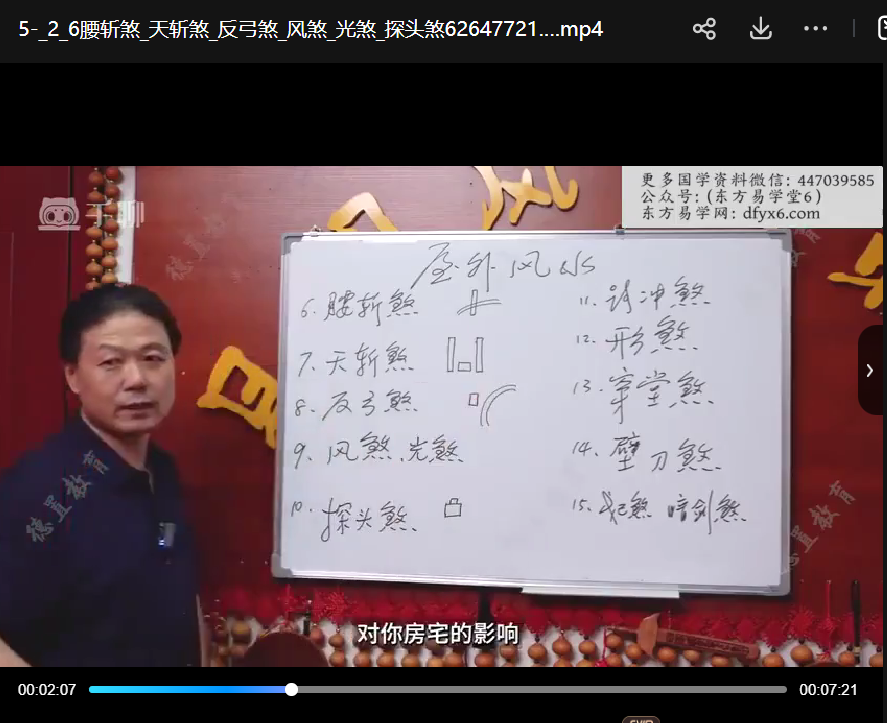 5-_2_6腰斩煞_天斩煞_反弓煞_风煞_光煞_探头煞62647721....mp4
更多国学资料微信: 447039585
公众号: (东方易学堂6)
东方易学网: dfyx6.com
千聊
屋外风水
6. 腰斩煞
7. 天斩煞
8. 反弓煞
9. 风煞、光煞
10. 探头煞、
11. 路冲煞
12. 形煞
13. 穿堂煞
14. 壁刀煞
15. 煞 暗剑煞
德置教育
德置教育
对你房宅的影响
00:02:07
00:07:21